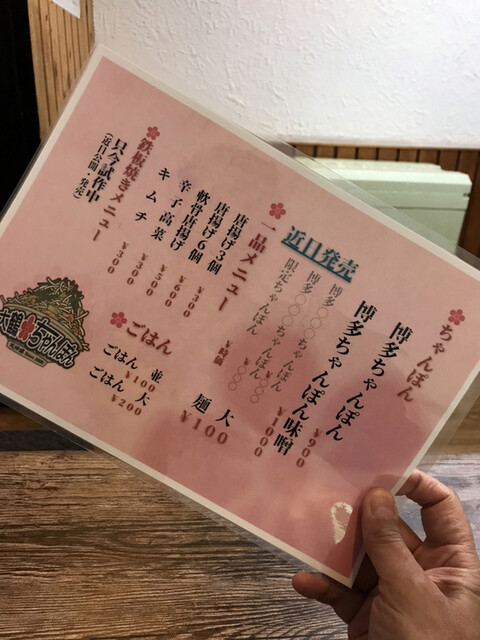 ちゃんぽん
博多ちゃんぽん ¥900
博多ちゃんぽん味噌 ¥1000
近日発売
博多〇〇〇ちゃんぽん ¥〇〇
博多〇〇〇ちゃんぽん ¥〇〇
限定ちゃんぽん ¥時価
麺 大 ¥100
一品メニュー
唐揚げ3個 ¥300
唐揚げ6個 ¥600
軟骨唐揚げ ¥500
辛子高菜 ¥300
キムチ ¥300
ごはん
ごはん 並 ¥100
ごはん 大 ¥200
鉄板焼きメニュー
只今試作中
(近日公開・発売)
ちゃんぽん